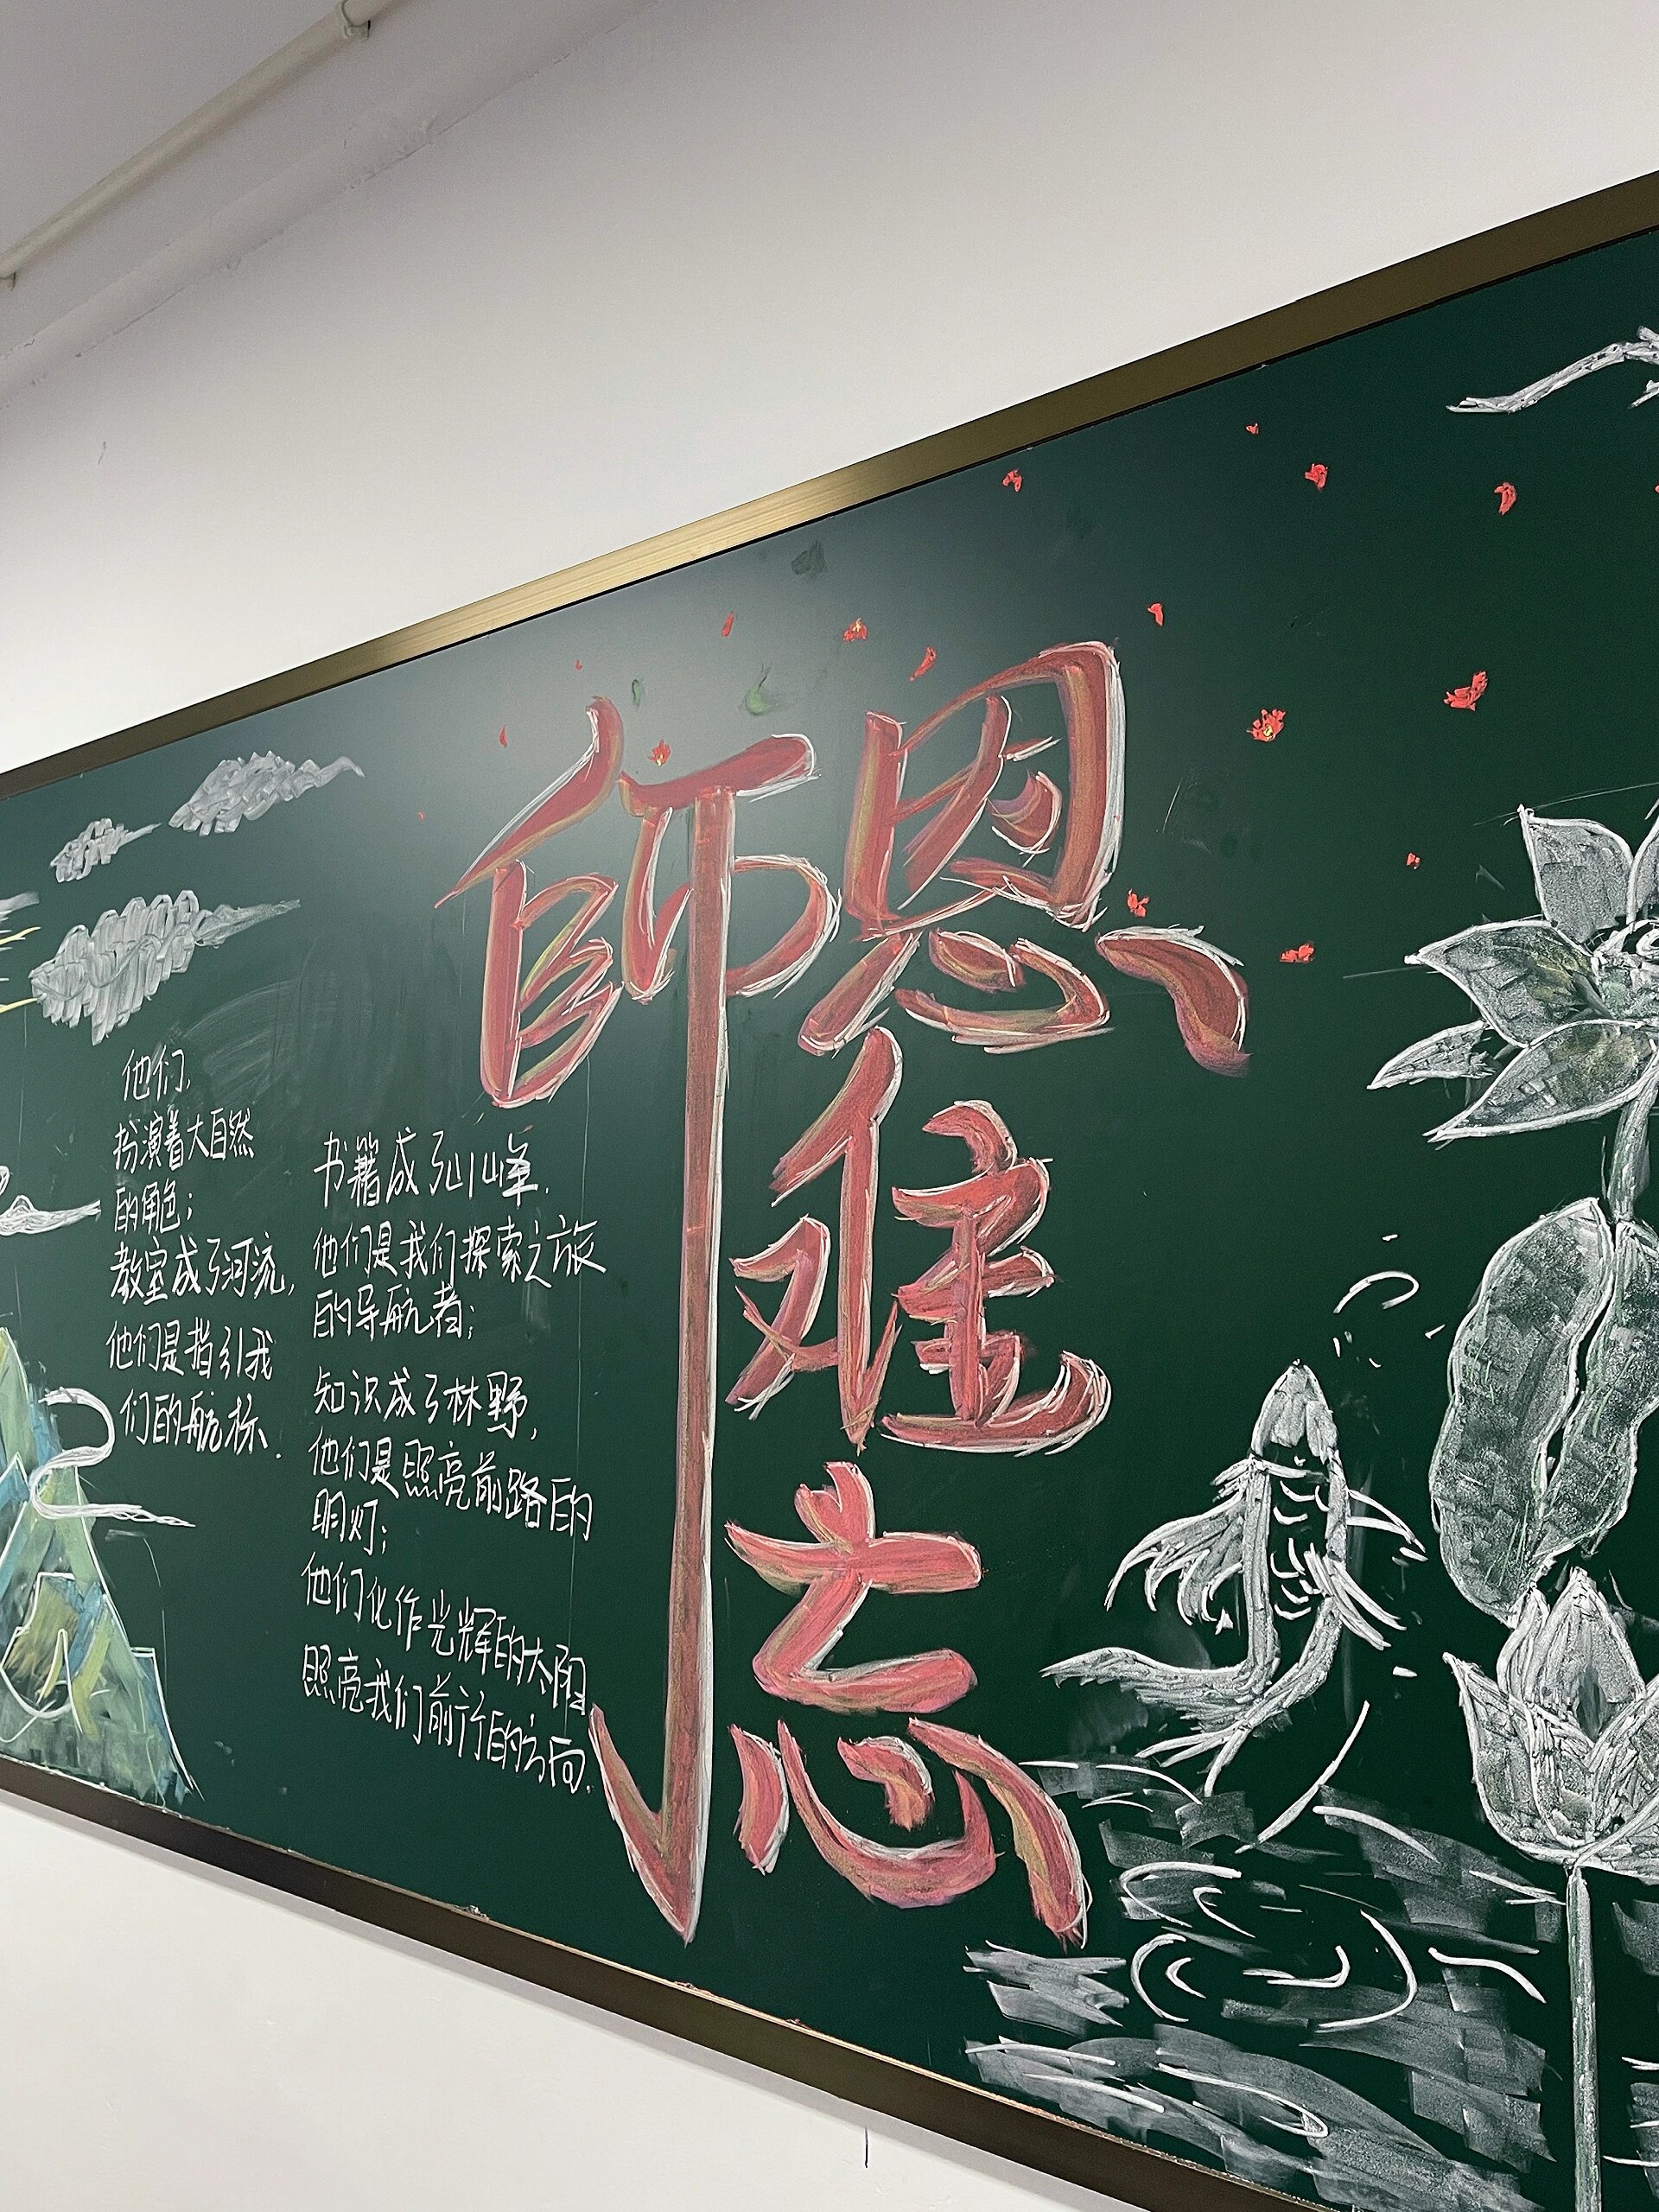 師恩难忘
他们,
扮演着大自然
的角色;
教室成了河流,
他们是指引我
们的航标.
书籍成了山峰,
他们是我们探索之旅
的导航者;
知识成了林野,
他们是照亮前路的
明灯;
他们化作光辉的太阳
照亮我们前行的方向.